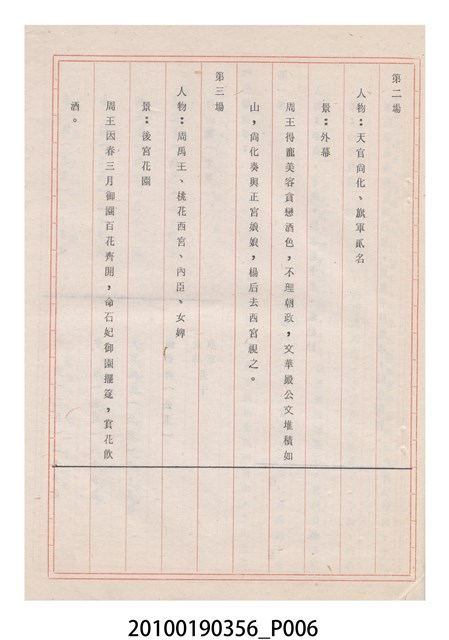 第二場
人物：天官尙化、旗軍貳名
景：外幕
周王得寵美容貪戀酒色，不理朝政，文華殿公文堆積如
山，尙化奏與正宮娘娘，楊后去西宮視之。
第三場
人物：周禹王、桃花西宮、內臣、女婢
景：後宮花園
周王因春三月御園百花齊開，命石妃御園擺筵，賞花飲
酒。
20100190356_P006